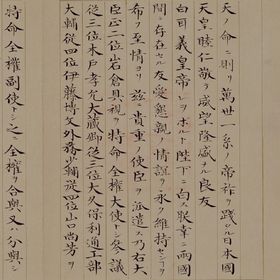 天ノ命ニ則リ萬世一系ノ帝祚ヲ践タル日本國
天皇睦仁敬テ威望隆盛ナル良友
白耳義皇帝レヲポルト陛下ニ白ス朕幸ニ両國
間ニ存在セル友愛懇親ノ情誼ヲ永ク維持センヿヲ
希フノ至情ヨリ茲ニ貴重ノ使臣ヲ派遣シ乃右大
臣正二位岩倉具視ヲ特命全権大使トシ参議
從三位木戸孝允大蔵卿從三位大久保利通工部
大輔從四位伊藤博文外務少輔從四位山口尚芳ヲ
特命全権副使トシ之ニ全権ヲ合與又ハ分與シ